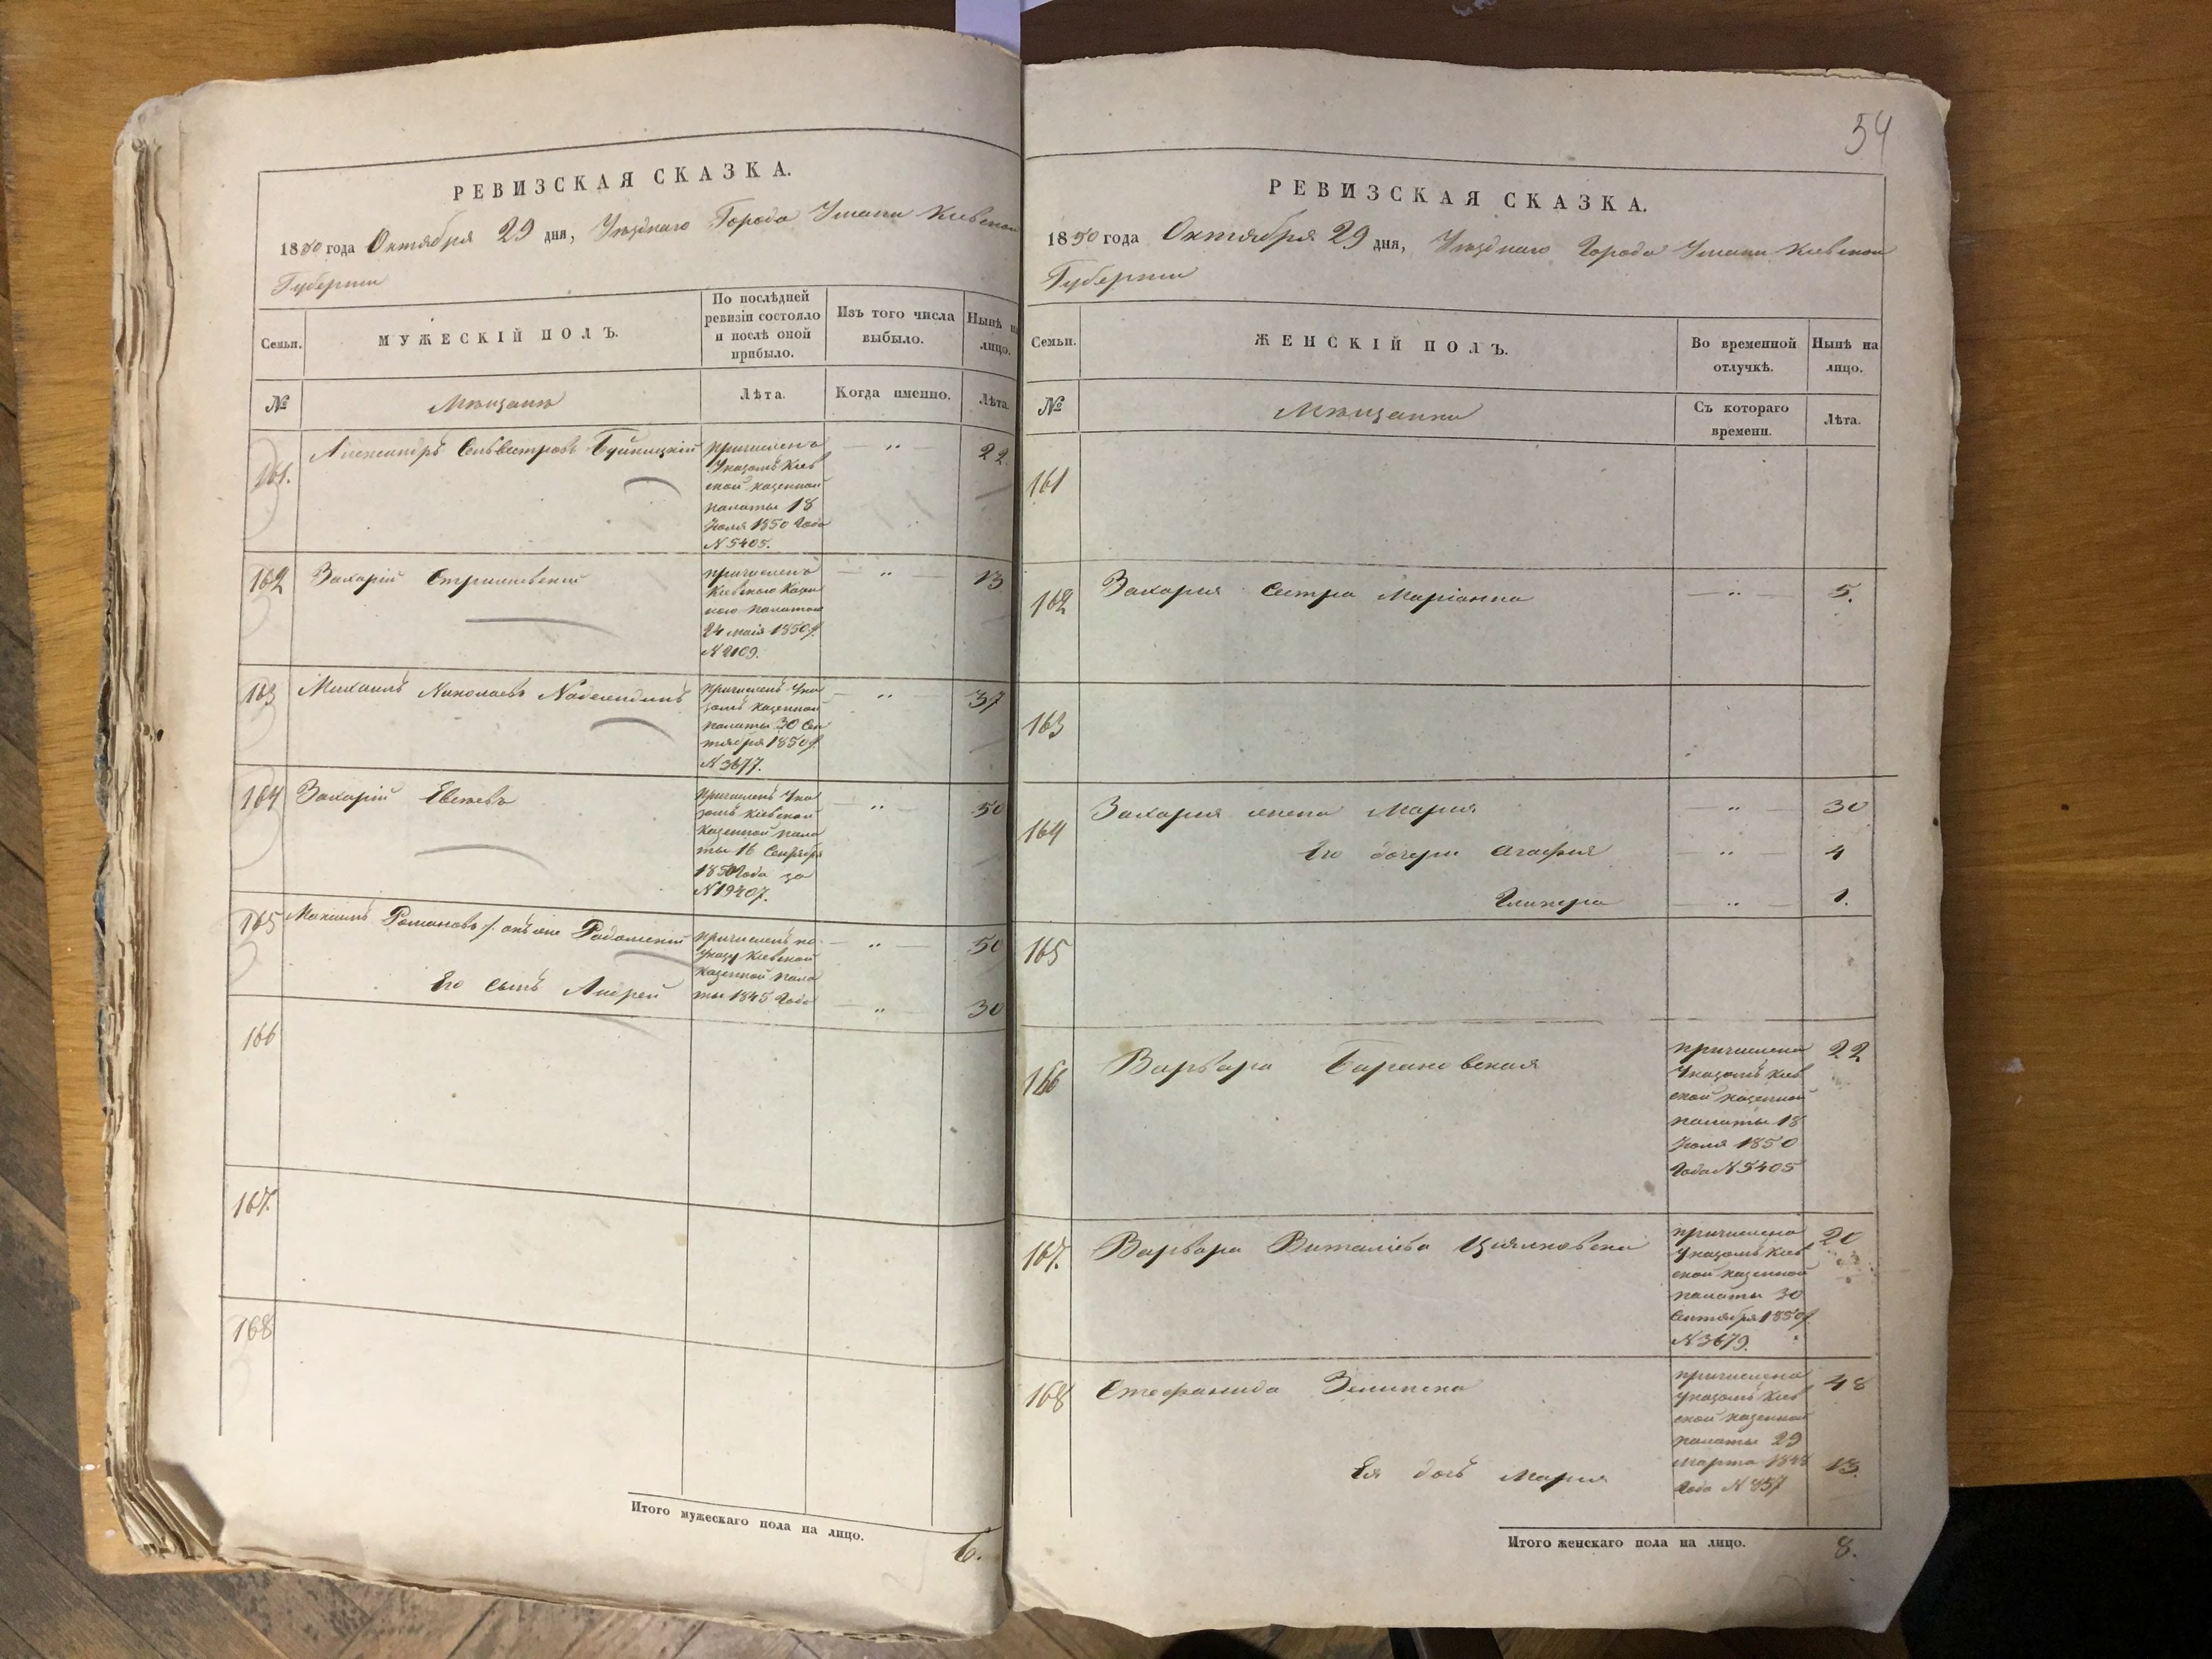 РЕВИЗСКАЯ СКАЗКА.
1850 года Октября 29 дня, Уѣзднаго Города Умани Кіевской
Губерніи
Семьи.
МУЖЕСКІЙ ПОЛЪ.
По послѣдней
ревизіи состояло
и послѣ оной
прибыло.
Изъ того числа
выбыло.
Нынѣ на
лицо.
№
Мѣщане
Лѣта.
Когда именно.
Лѣта.
161.
Александръ Сильвестровъ
причисленъ
Указомъ Кіев
ской казенной
палаты 18
Іюля 1850 года
N 5405.
22.
162
Захарій
причисленъ
Кіевскою Казен
ною палатою
24 маія 1850 г.
N 2109.
13
163
Михаилъ Николаевъ
причисленъ Ука
зомъ казенной
палаты 30 Сен
тября 1850 г.
N 3677.
37
164
Захарій
причисленъ Ука
зомъ Кіевской
казенной пала
ты 16 Сентября
1850 года за
N 19407.
50
165
Максимъ Романовъ Радомскій
причисленъ по
Указу Кіевской
казенной пала
ты 1845 года
50
Его сынъ Андрей
30
166
167.
168
Итого мужескаго пола на лицо.
6.
54
РЕВИЗСКАЯ СКАЗКА.
1850 года Октября 29 дня, Уѣзднаго Города Умани Кіевской
Губерніи
Семьи.
ЖЕНСКІЙ ПОЛЪ.
Во временной
отлучкѣ.
Нынѣ на
лицо.
№
Мѣщанки
Съ котораго
времени.
Лѣта.
161
162
Захарія Сестра Маріанна
5.
163
164
Захарія жена Марія
30
Его дочери Агафія
4
Гликера
1.
165
166
Варвара Барановская
причислена
Указомъ Кіев
ской казенной
палаты 18
Іюля 1850
года N 5405
22
167.
Варвара Виталіева
причислена
Указомъ Кіев
ской казенной
палаты 30
Сентября 1850 г.
N 3679.
20
168
Стефанида
причислена
Указомъ Кіев
ской казенной
палаты 29
марта 1848
года N 857
48
Ея дочь Марія
13.
Итого женскаго пола на лицо.
8.